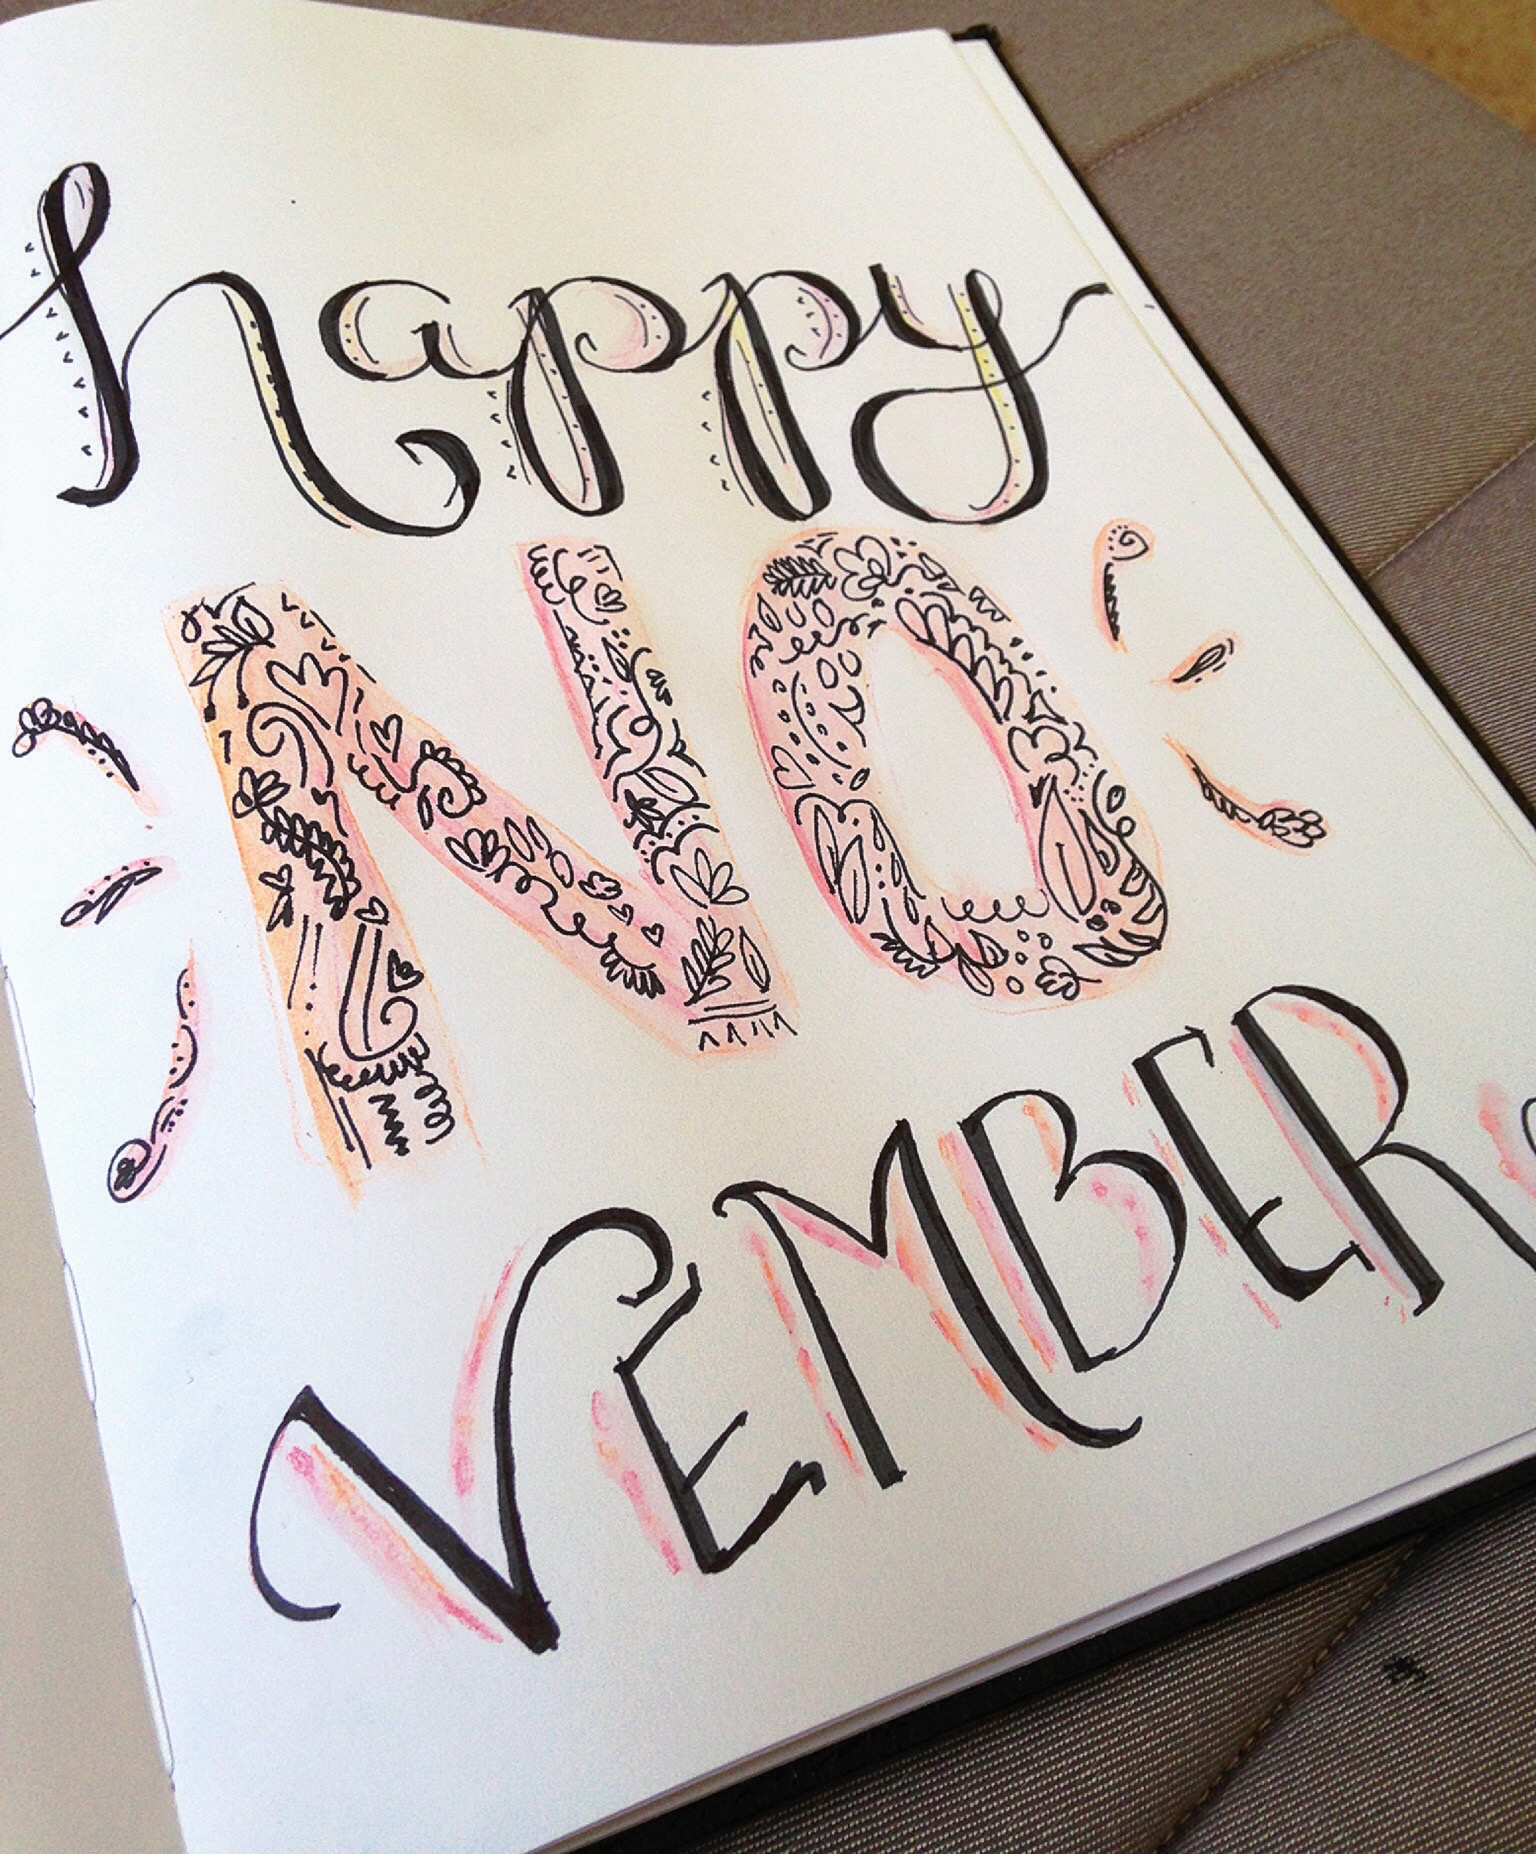 happy
NO
VEMBER